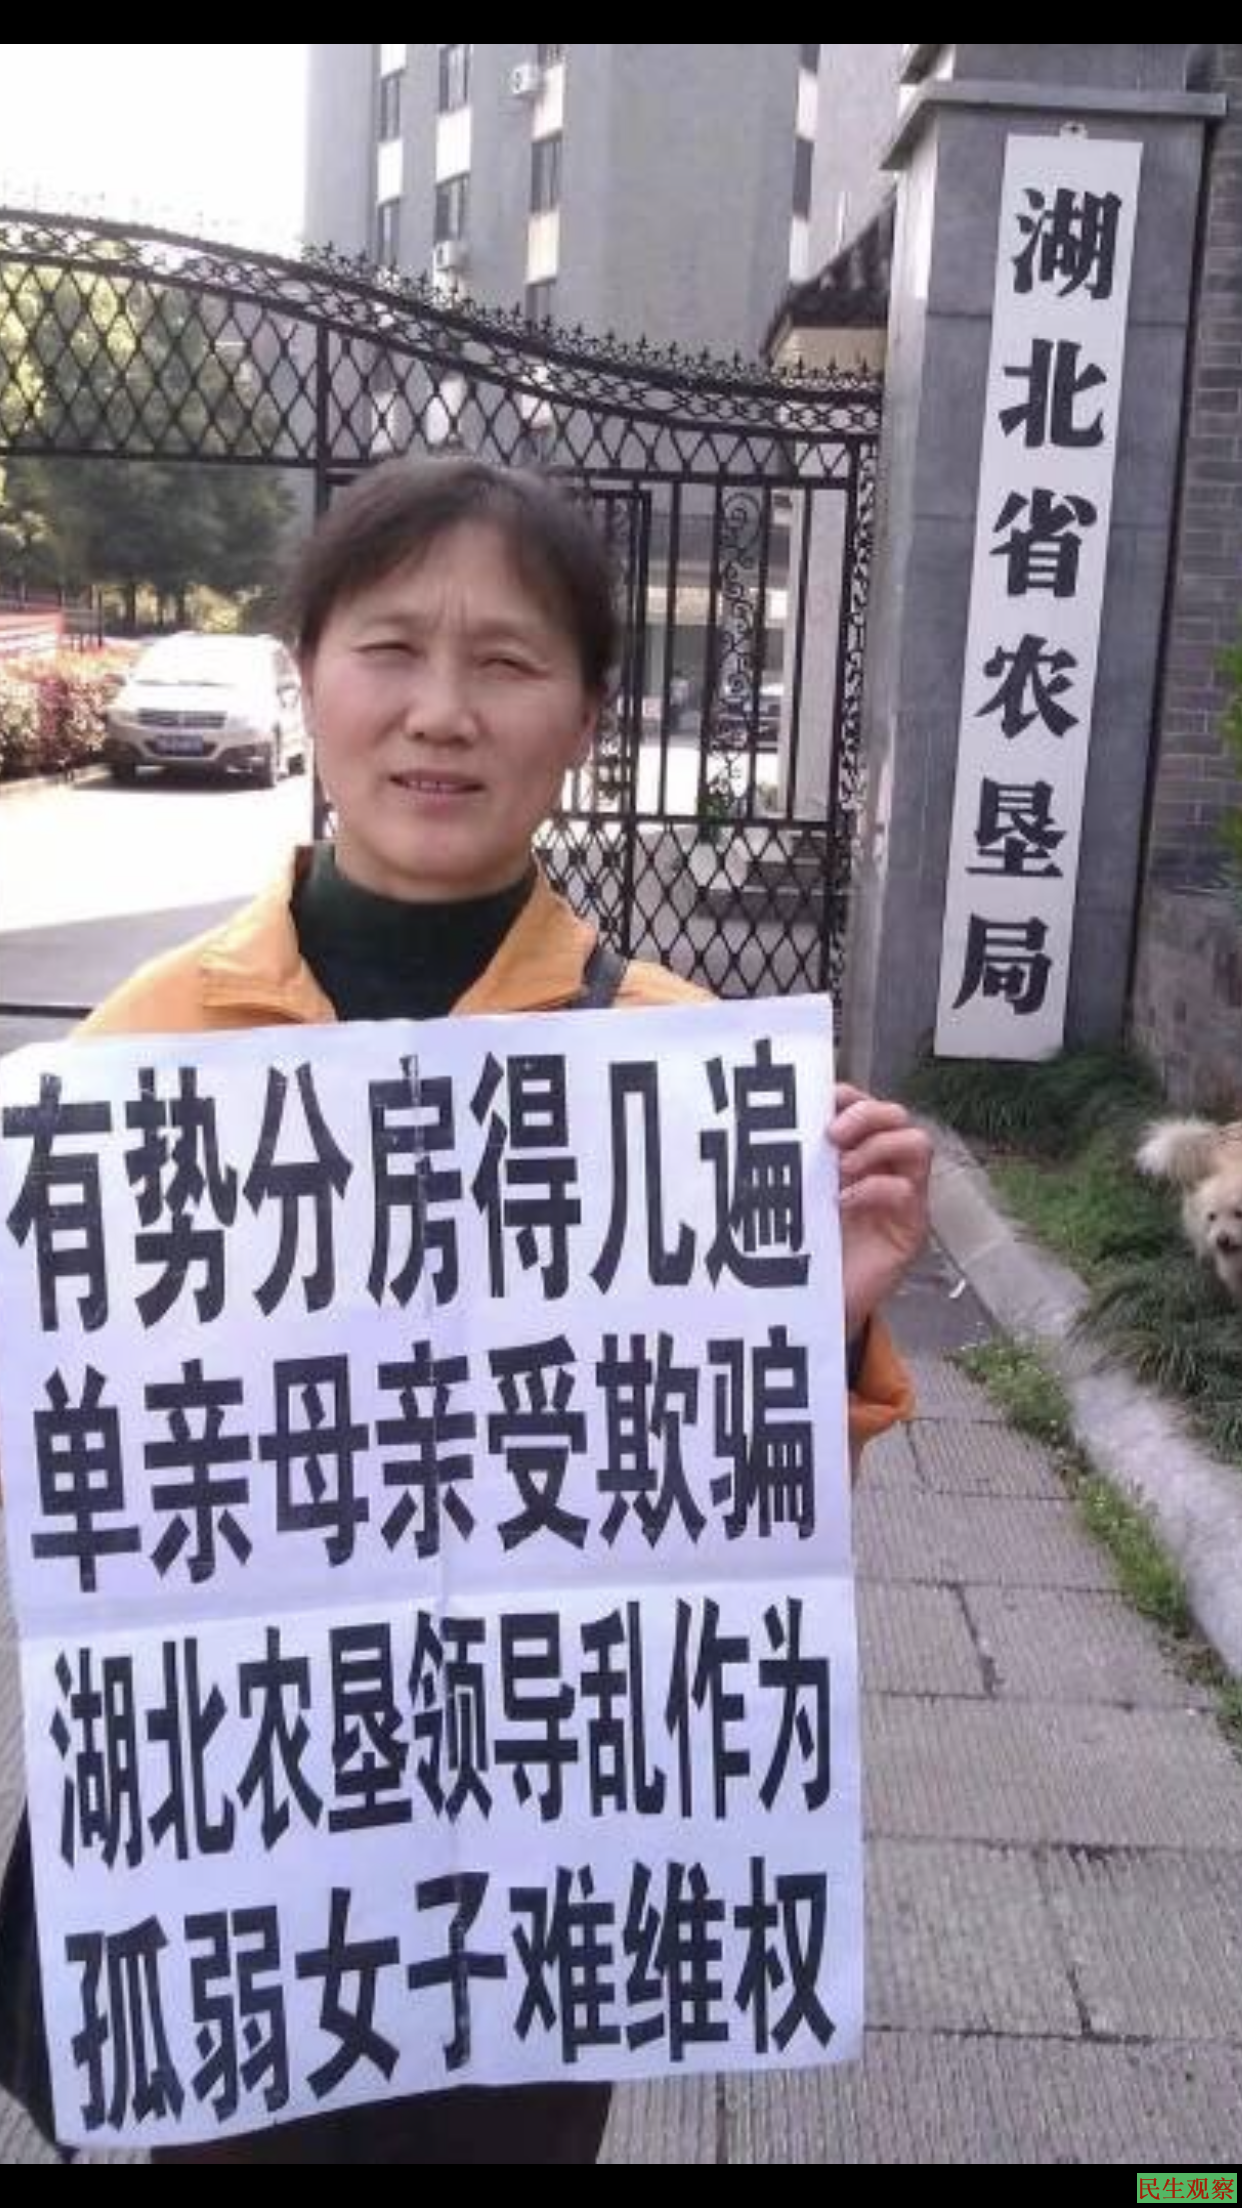 湖北省农垦局
有势分房得几遍
单亲母亲受欺骗
湖北农垦领导乱作为
孤弱女子难维权
民生观察